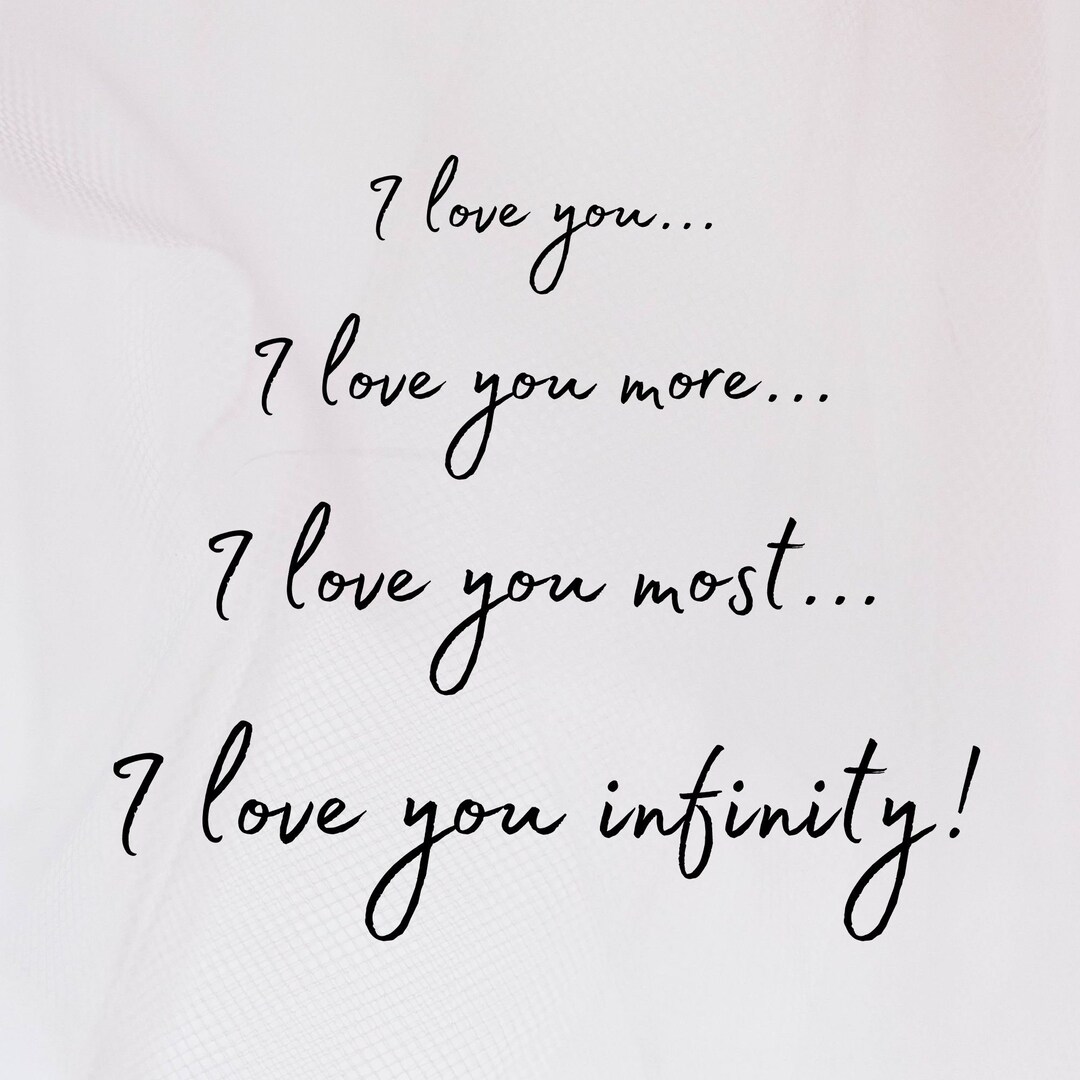 I love you...
I love you more...
I love you most...
I love you infinity!